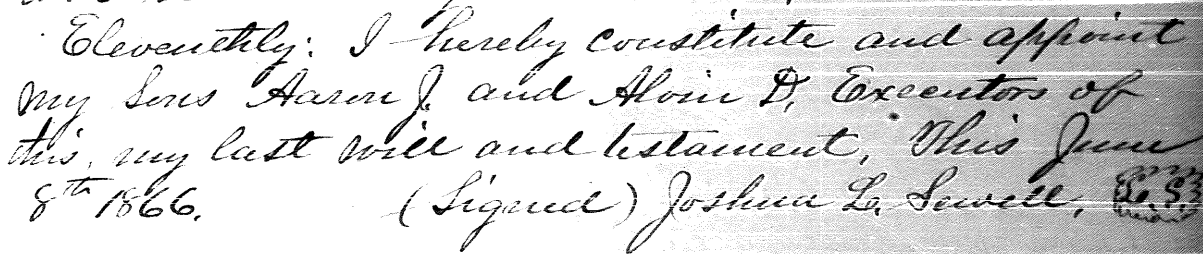 Eleventhly: I hereby constitute and appoint
my Sons Aaron J. and Alvin D, Executors of
this, my last will and testament, This June
8th 1866. (Signed) Joshua L. Sewell, L. S.